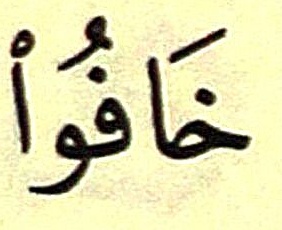 خَافُواْ